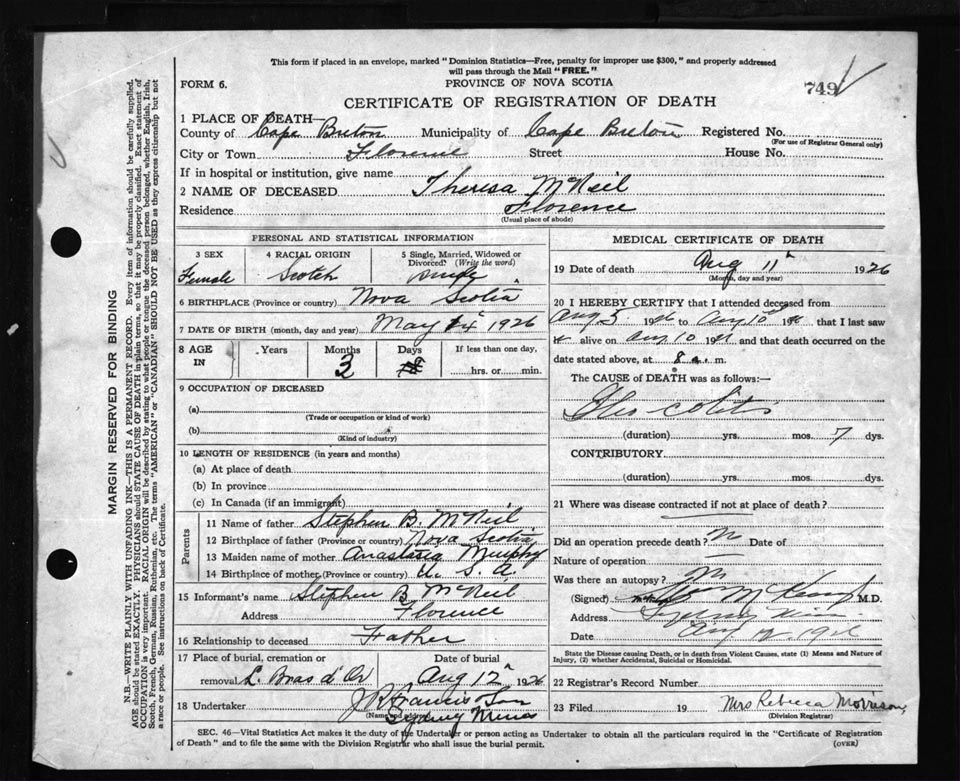 This form if placed in an envelope, marked "Dominion Statistics—Free, penalty for improper use $300," and properly addressed
will pass through the Mail "FREE."
FORM 6.
PROVINCE OF NOVA SCOTIA
749
CERTIFICATE OF REGISTRATION OF DEATH
1 PLACE OF DEATH—
County of Cape Breton Municipality of Cape Breton Registered No.
(For use of Registrar General only)
City or Town Florence Street House No.
If in hospital or institution, give name
2 NAME OF DECEASED Theresa McNeil
Residence Florence
(Usual place of abode)
PERSONAL AND STATISTICAL INFORMATION
3 SEX 4 RACIAL ORIGIN 5 Single, Married, Widowed or Divorced? (Write the word)
Female Scotch Single
6 BIRTHPLACE (Province or country) Nova Scotia
7 DATE OF BIRTH (month, day and year) May 14 1926
8 AGE IN Years Months Days If less than one day,
3 hrs. or min.
9 OCCUPATION OF DECEASED
(a)
(Trade or occupation or kind of work)
(b)
(Kind of industry)
10 LENGTH OF RESIDENCE (in years and months)
(a) At place of death
(b) In province
(c) In Canada (if an immigrant)
Parents
11 Name of father Stephen B. McNeil
12 Birthplace of father (Province or country) Nova Scotia
13 Maiden name of mother Anastasia Murphy
14 Birthplace of mother (Province or country) U. S. A.
15 Informant's name Stephen B McNeil
Address Florence
16 Relationship to deceased Father
17 Place of burial, cremation or Date of burial
removal L. Bras d'Or Aug 12 1926
18 Undertaker J R Francis Son
(Name and address)
Sydney Mines
MEDICAL CERTIFICATE OF DEATH
19 Date of death Aug 11 1926
(Month, day and year)
20 I HEREBY CERTIFY that I attended deceased from
Aug 5 1926 to Aug 10 1926 that I last saw
alive on Aug 10 1926 and that death occurred on the
date stated above, at 8 a. m.
The CAUSE of DEATH was as follows:—
Ileo-colitis
(duration) yrs. mos. 7 dys.
CONTRIBUTORY
(duration) yrs. mos. dys.
21 Where was disease contracted if not at place of death?
Did an operation precede death? No Date of
Nature of operation
Was there an autopsy? No
(Signed) M.D.
Address Sydney Mines
Date Aug 12 1926
State the Disease causing Death, or in death from Violent Causes, state (1) Means and Nature of
Injury, (2) whether Accidental, Suicidal or Homicidal.
22 Registrar's Record Number
23 Filed 19 Mrs Rebecca Morrison,
(Division Registrar)
SEC. 46—Vital Statistics Act makes it the duty of the Undertaker or person acting as Undertaker to obtain all the particulars required in the "Certificate of Registration
of Death" and to file the same with the Division Registrar who shall issue the burial permit. (OVER)
MARGIN RESERVED FOR BINDING
N.B.—WRITE PLAINLY WITH UNFADING INK—THIS IS A PERMANENT RECORD. Every item of information should be carefully supplied.
AGE should be stated EXACTLY. PHYSICIANS should STATE CAUSE OF DEATH in plain terms, so that it may be properly classified. Exact statement of
OCCUPATION is very important. RACIAL ORIGIN will be described by stating to what people or tongue the deceased person belonged, whether English, Irish,
Scotch, French, German, Russian, Ruthenian, etc. The terms "AMERICAN" or "CANADIAN" SHOULD NOT BE USED as they express citizenship but not
a race or people. See instructions on back of Certificate.